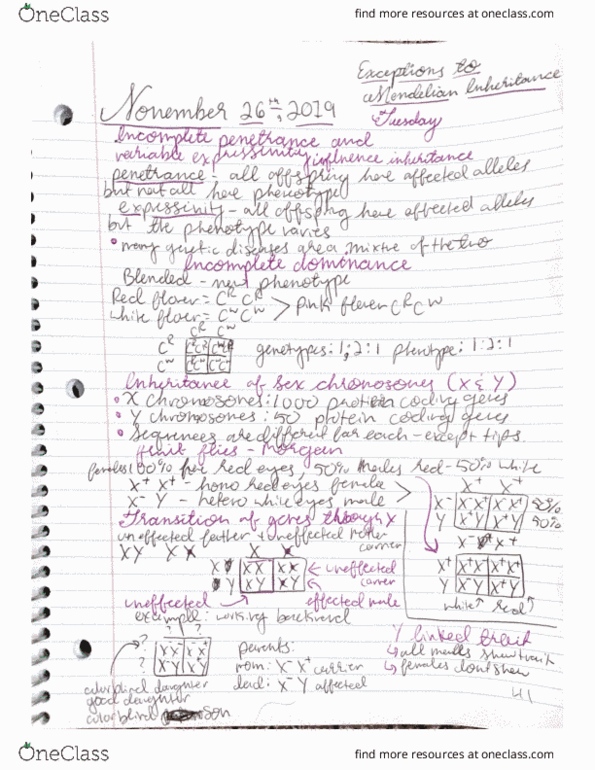 OneClass
find more resources at oneclass.com
Exceptions to
Mendelian Inheritance
November 26th, 2019
Tuesday
Incomplete penetrance and
variable expressivity influence inheritance
penetrance - all offspring have affected alleles
but not all have phenotype
expressivity - all offspring have affected alleles
but the phenotype varies
• many genetic diseases are a mixture of the two
Incomplete dominance
Blended - new phenotype
Red flower = CR CR > pink flower CR CW
white flower = CW CW
CR CW
CR CRCR CRCW
CW CRCW CWCW
genotypes: 1:2:1 phentype: 1:2:1
Inheritance of sex chromosones (X & Y)
• X chromosones: 1000 protein coding genes
• Y chromosones: 50 protein coding genes
• Sequences are different for each - except tips.
fruit flies - Morgan
females 100% for red eyes, 50% males red - 50% white
X+ X+ - homo red eyes female
X- Y - hetero white eyes male
X+ X+
X- X-X+ X-X+ 50%
Y X+Y X+Y 50%
Transition of genes through X
uneffected father + uneffected mother
carrier
XY XX
X X
X XX XX ← uneffected
Y XY XY carrer
uneffected effected male
X- X+
X+ X+X- X+X+
Y X-Y X+Y
white↑ red↑
example: working backward
? ?
? X-X- X-X+
? X-Y X+Y
parents:
mom: X- X+ carrier
dad: X- Y affected
colorblind daughter
good daughter
colorblind son
Y linked trait
↳ all males show trait
↳ females dont show
41
OneClass
find more resources at oneclass.com